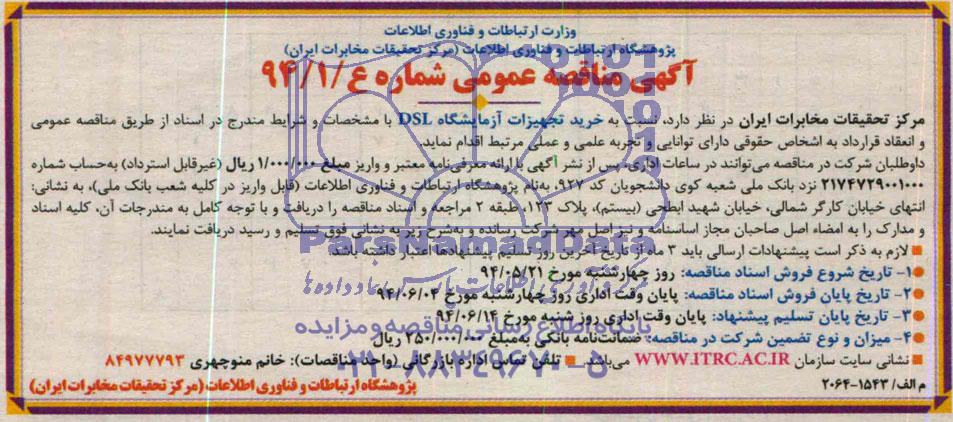 وزارت ارتباطات و فناوری اطلاعات
پژوهشگاه ارتباطات و فناوری اطلاعات (مرکز تحقیقات مخابرات ایران)
آگهی مناقصه عمومی شماره ع/۹۴/۱
مرکز تحقیقات مخابرات ایران در نظر دارد، نسبت به خرید تجهیزات آزمایشگاه DSL با مشخصات و شرایط مندرج در اسناد از طریق مناقصه عمومی
و انعقاد قرارداد به اشخاص حقوقی دارای توانایی و تجربه علمی و عملی مرتبط اقدام نماید.
داوطلبان شرکت در مناقصه می‌توانند در ساعات اداری، پس از نشر آگهی با ارائه معرفی‌نامه معتبر و واریز مبلغ ۱/۰۰۰/۰۰۰ ریال (غیرقابل استرداد) به‌حساب شماره
۲۱۷۴۷۲۹۰۰۱۰۰۰ نزد بانک ملی شعبه کوی دانشجویان کد ۹۲۷، به‌نام پژوهشگاه ارتباطات و فناوری اطلاعات (قابل واریز در کلیه شعب بانک ملی)، به نشانی:
انتهای خیابان کارگر شمالی، خیابان شهید ابطحی (بیستم)، پلاک ۱۲۳، طبقه ۲ مراجعه و اسناد مناقصه را دریافت و با توجه کامل به مندرجات آن، کلیه اسناد
و مدارک را به امضاء اصل صاحبان مجاز اساسنامه و نیز اصل مهر شرکت رسانده و به‌شرح زیر به نشانی فوق تسلیم و رسید دریافت نمایند.
■ لازم به ذکر است پیشنهادات ارسالی باید ۳ ماه از تاریخ آخرین روز تسلیم پیشنهادها اعتبار داشته باشد.
●۱- تاریخ شروع فروش اسناد مناقصه: روز چهارشنبه مورخ ۹۴/۰۵/۲۱
●۲- تاریخ پایان فروش اسناد مناقصه: پایان وقت اداری روز چهارشنبه مورخ ۹۴/۰۶/۰۴
●۳- تاریخ پایان تسلیم پیشنهاد: پایان وقت اداری روز شنبه مورخ ۹۴/۰۶/۱۴
●۴- میزان و نوع تضمین شرکت در مناقصه: ضمانت‌نامه بانکی به‌مبلغ ۲۵۰/۰۰۰/۰۰۰ ریال
■ نشانی سایت سازمان WWW.ITRC.AC.IR می‌باشد. ■ تلفن تماس اداره بازرگانی (واحد مناقصات): خانم منوچهری ۸۴۹۷۷۷۹۳
م الف/ ۱۵۴۳-۲۰۶۴
پژوهشگاه ارتباطات و فناوری اطلاعات (مرکز تحقیقات مخابرات ایران)
ParsNamadData
پایگاه اطلاع رسانی مناقصه و مزایده
۰۲۱-۸۸۳۴۹۶۷۰-۵